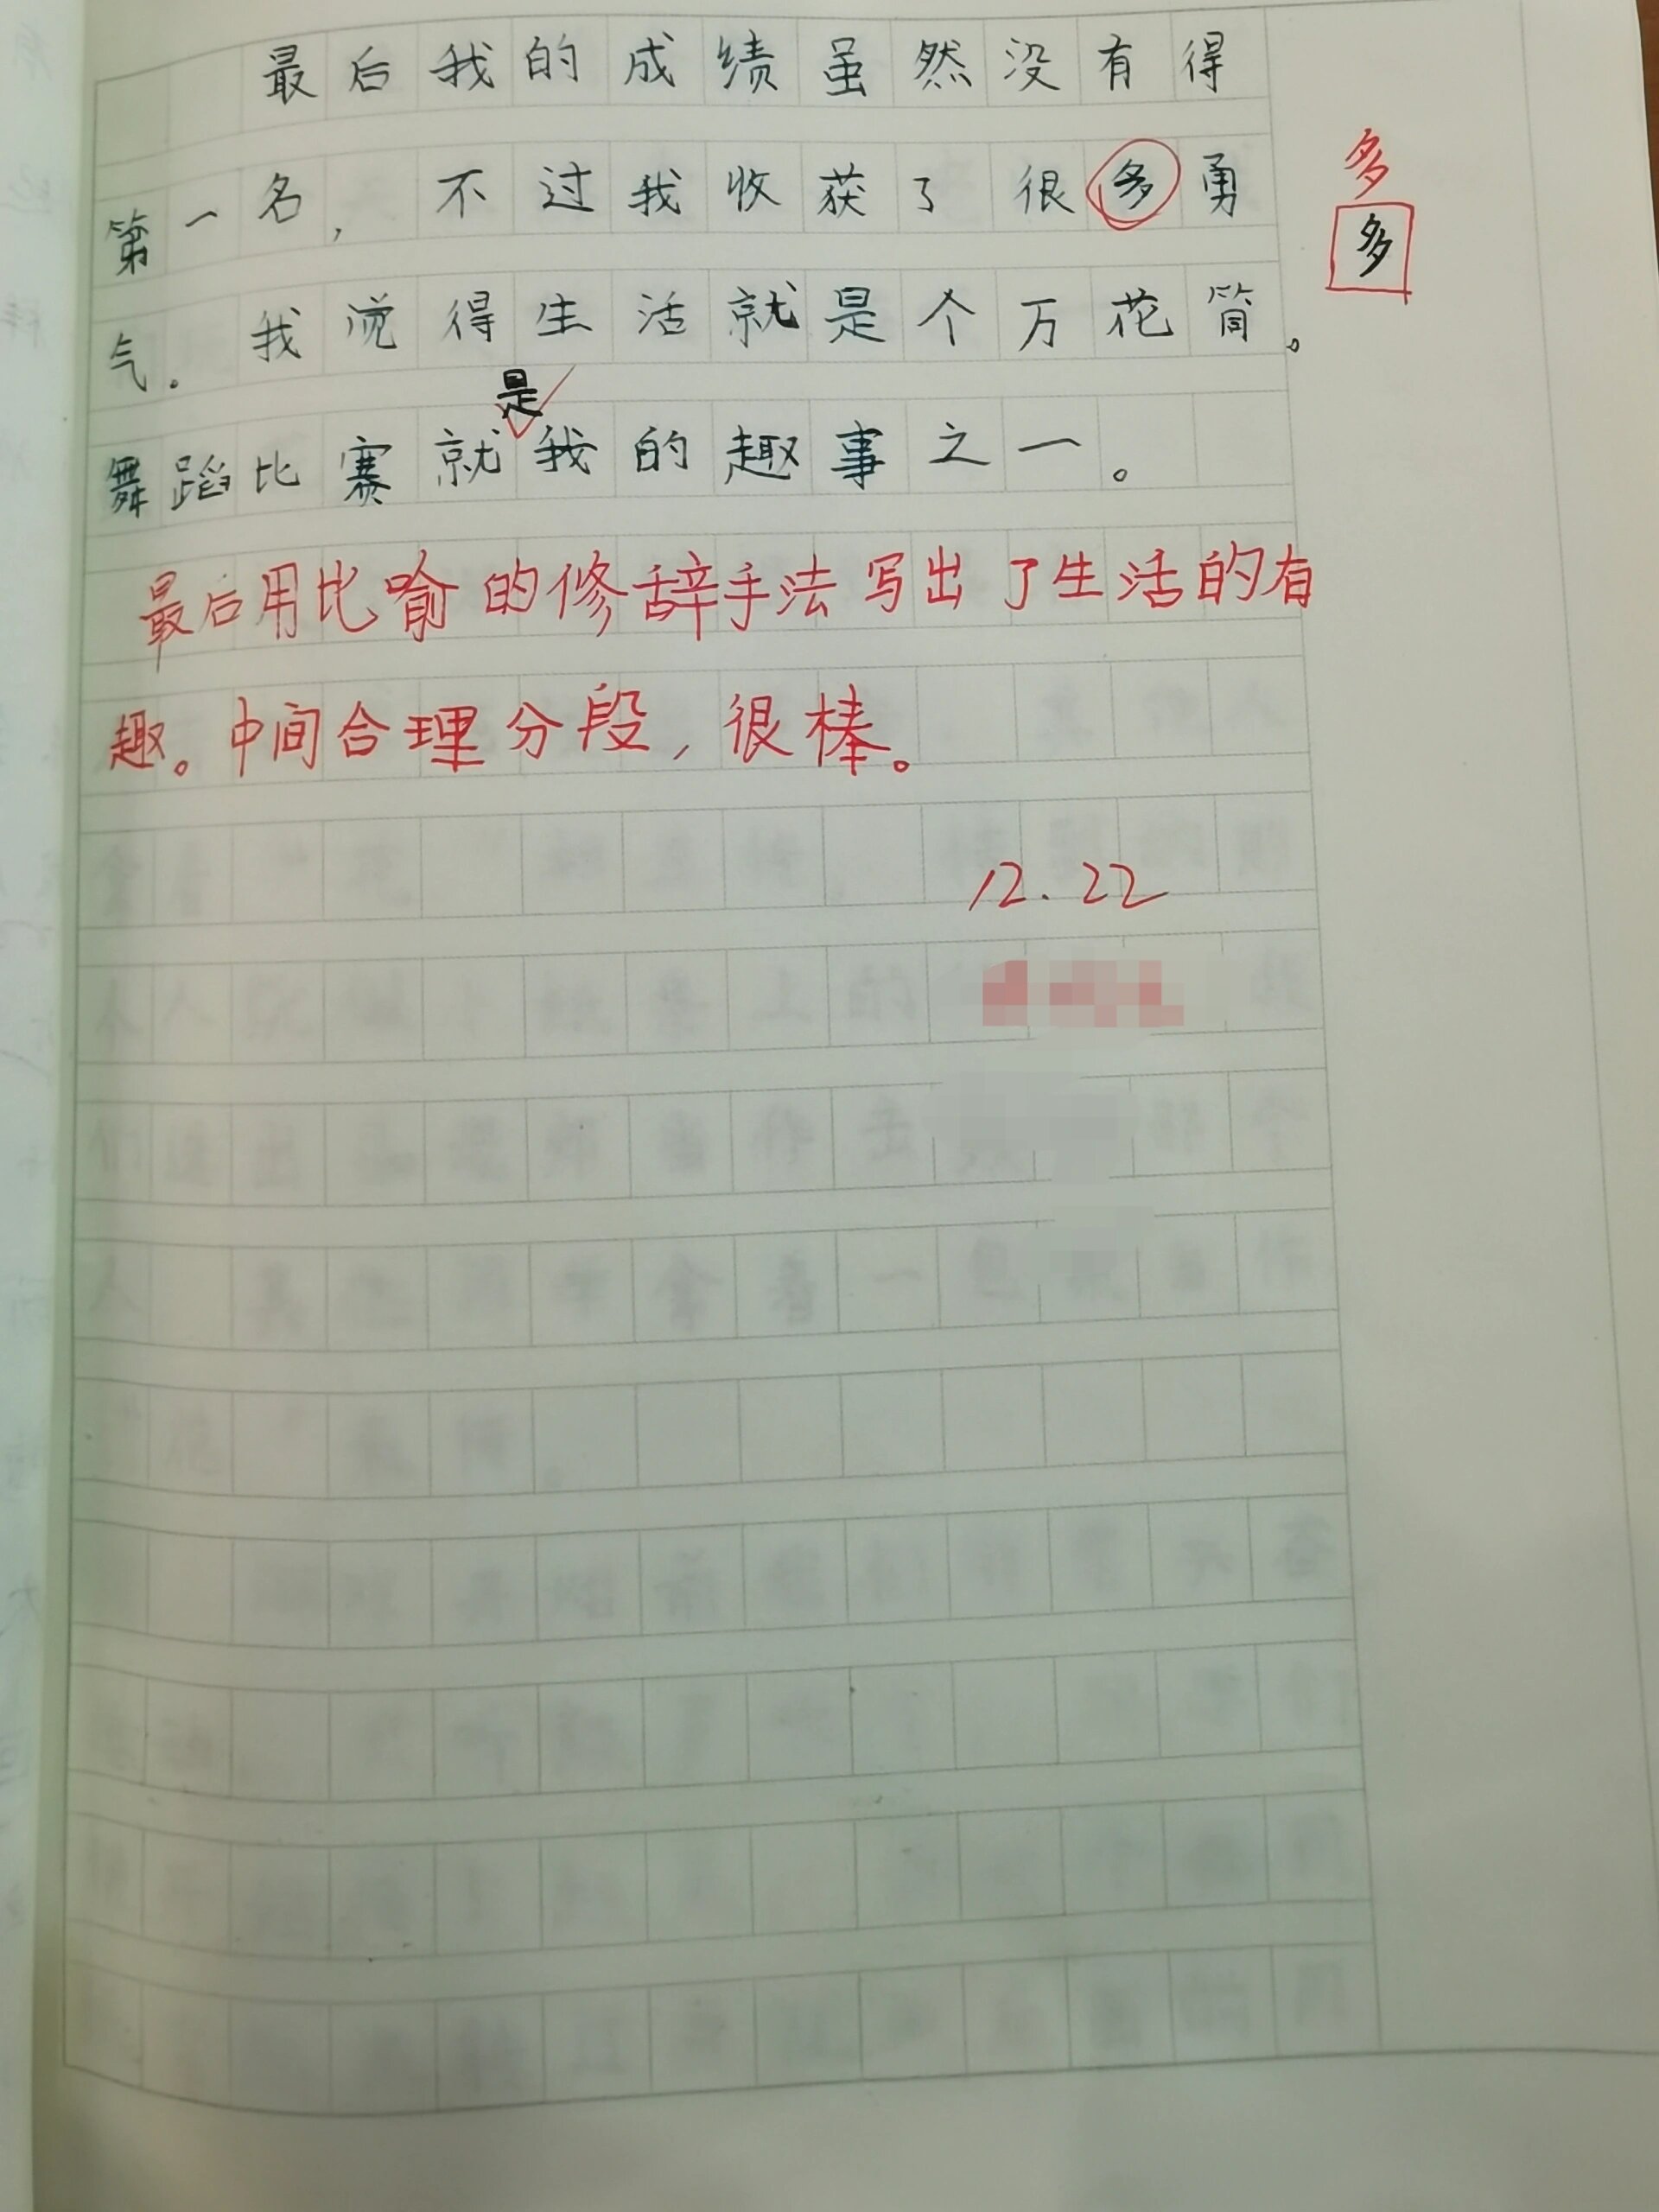 最后我的成绩虽然没有得
第一名，不过我收获了很多勇
多
多
气。我觉得生活就是个万花筒。
是
舞蹈比赛就我的趣事之一。
最后用比喻的修辞手法写出了生活的有
趣。中间合理分段，很棒。
12.22